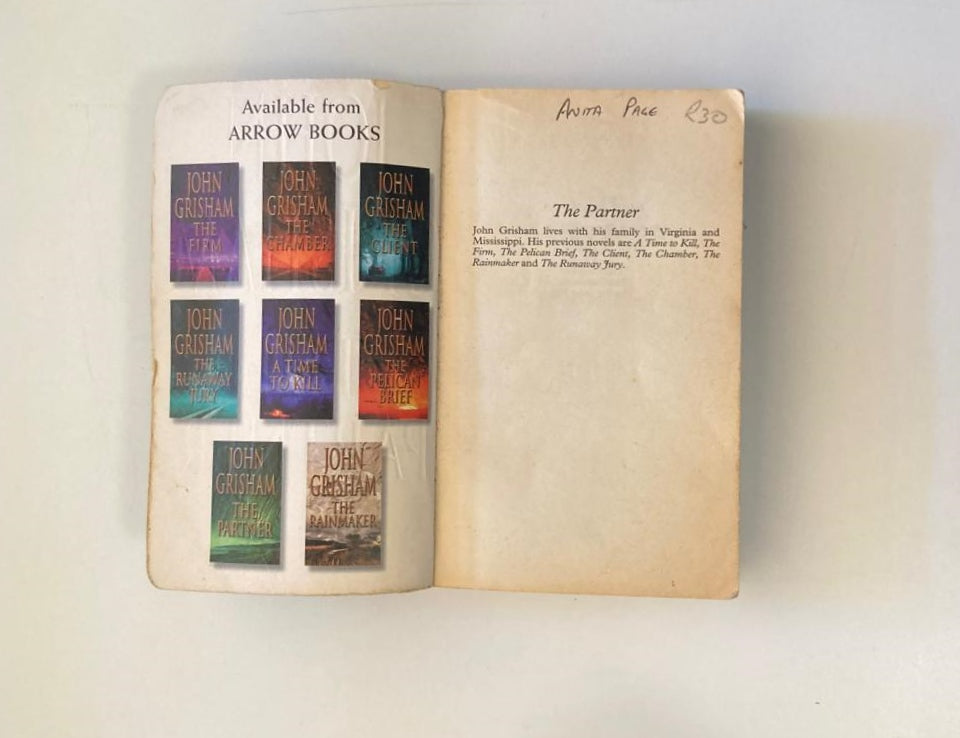 Available from
ARROW BOOKS
JOHN
GRISHAM
THE
FIRM
JOHN
GRISHAM
THE
CHAMBER
JOHN
GRISHAM
THE
CLIENT
JOHN
GRISHAM
THE
RUNAWAY
JURY
JOHN
GRISHAM
A TIME
TO KILL
JOHN
GRISHAM
THE
PELICAN
BRIEF
JOHN
GRISHAM
THE
PARTNER
JOHN
GRISHAM
THE
RAINMAKER
ANITA PAGE R30
The Partner
John Grisham lives with his family in Virginia and
Mississippi. His previous novels are A Time to Kill, The
Firm, The Pelican Brief, The Client, The Chamber, The
Rainmaker and The Runaway Jury.